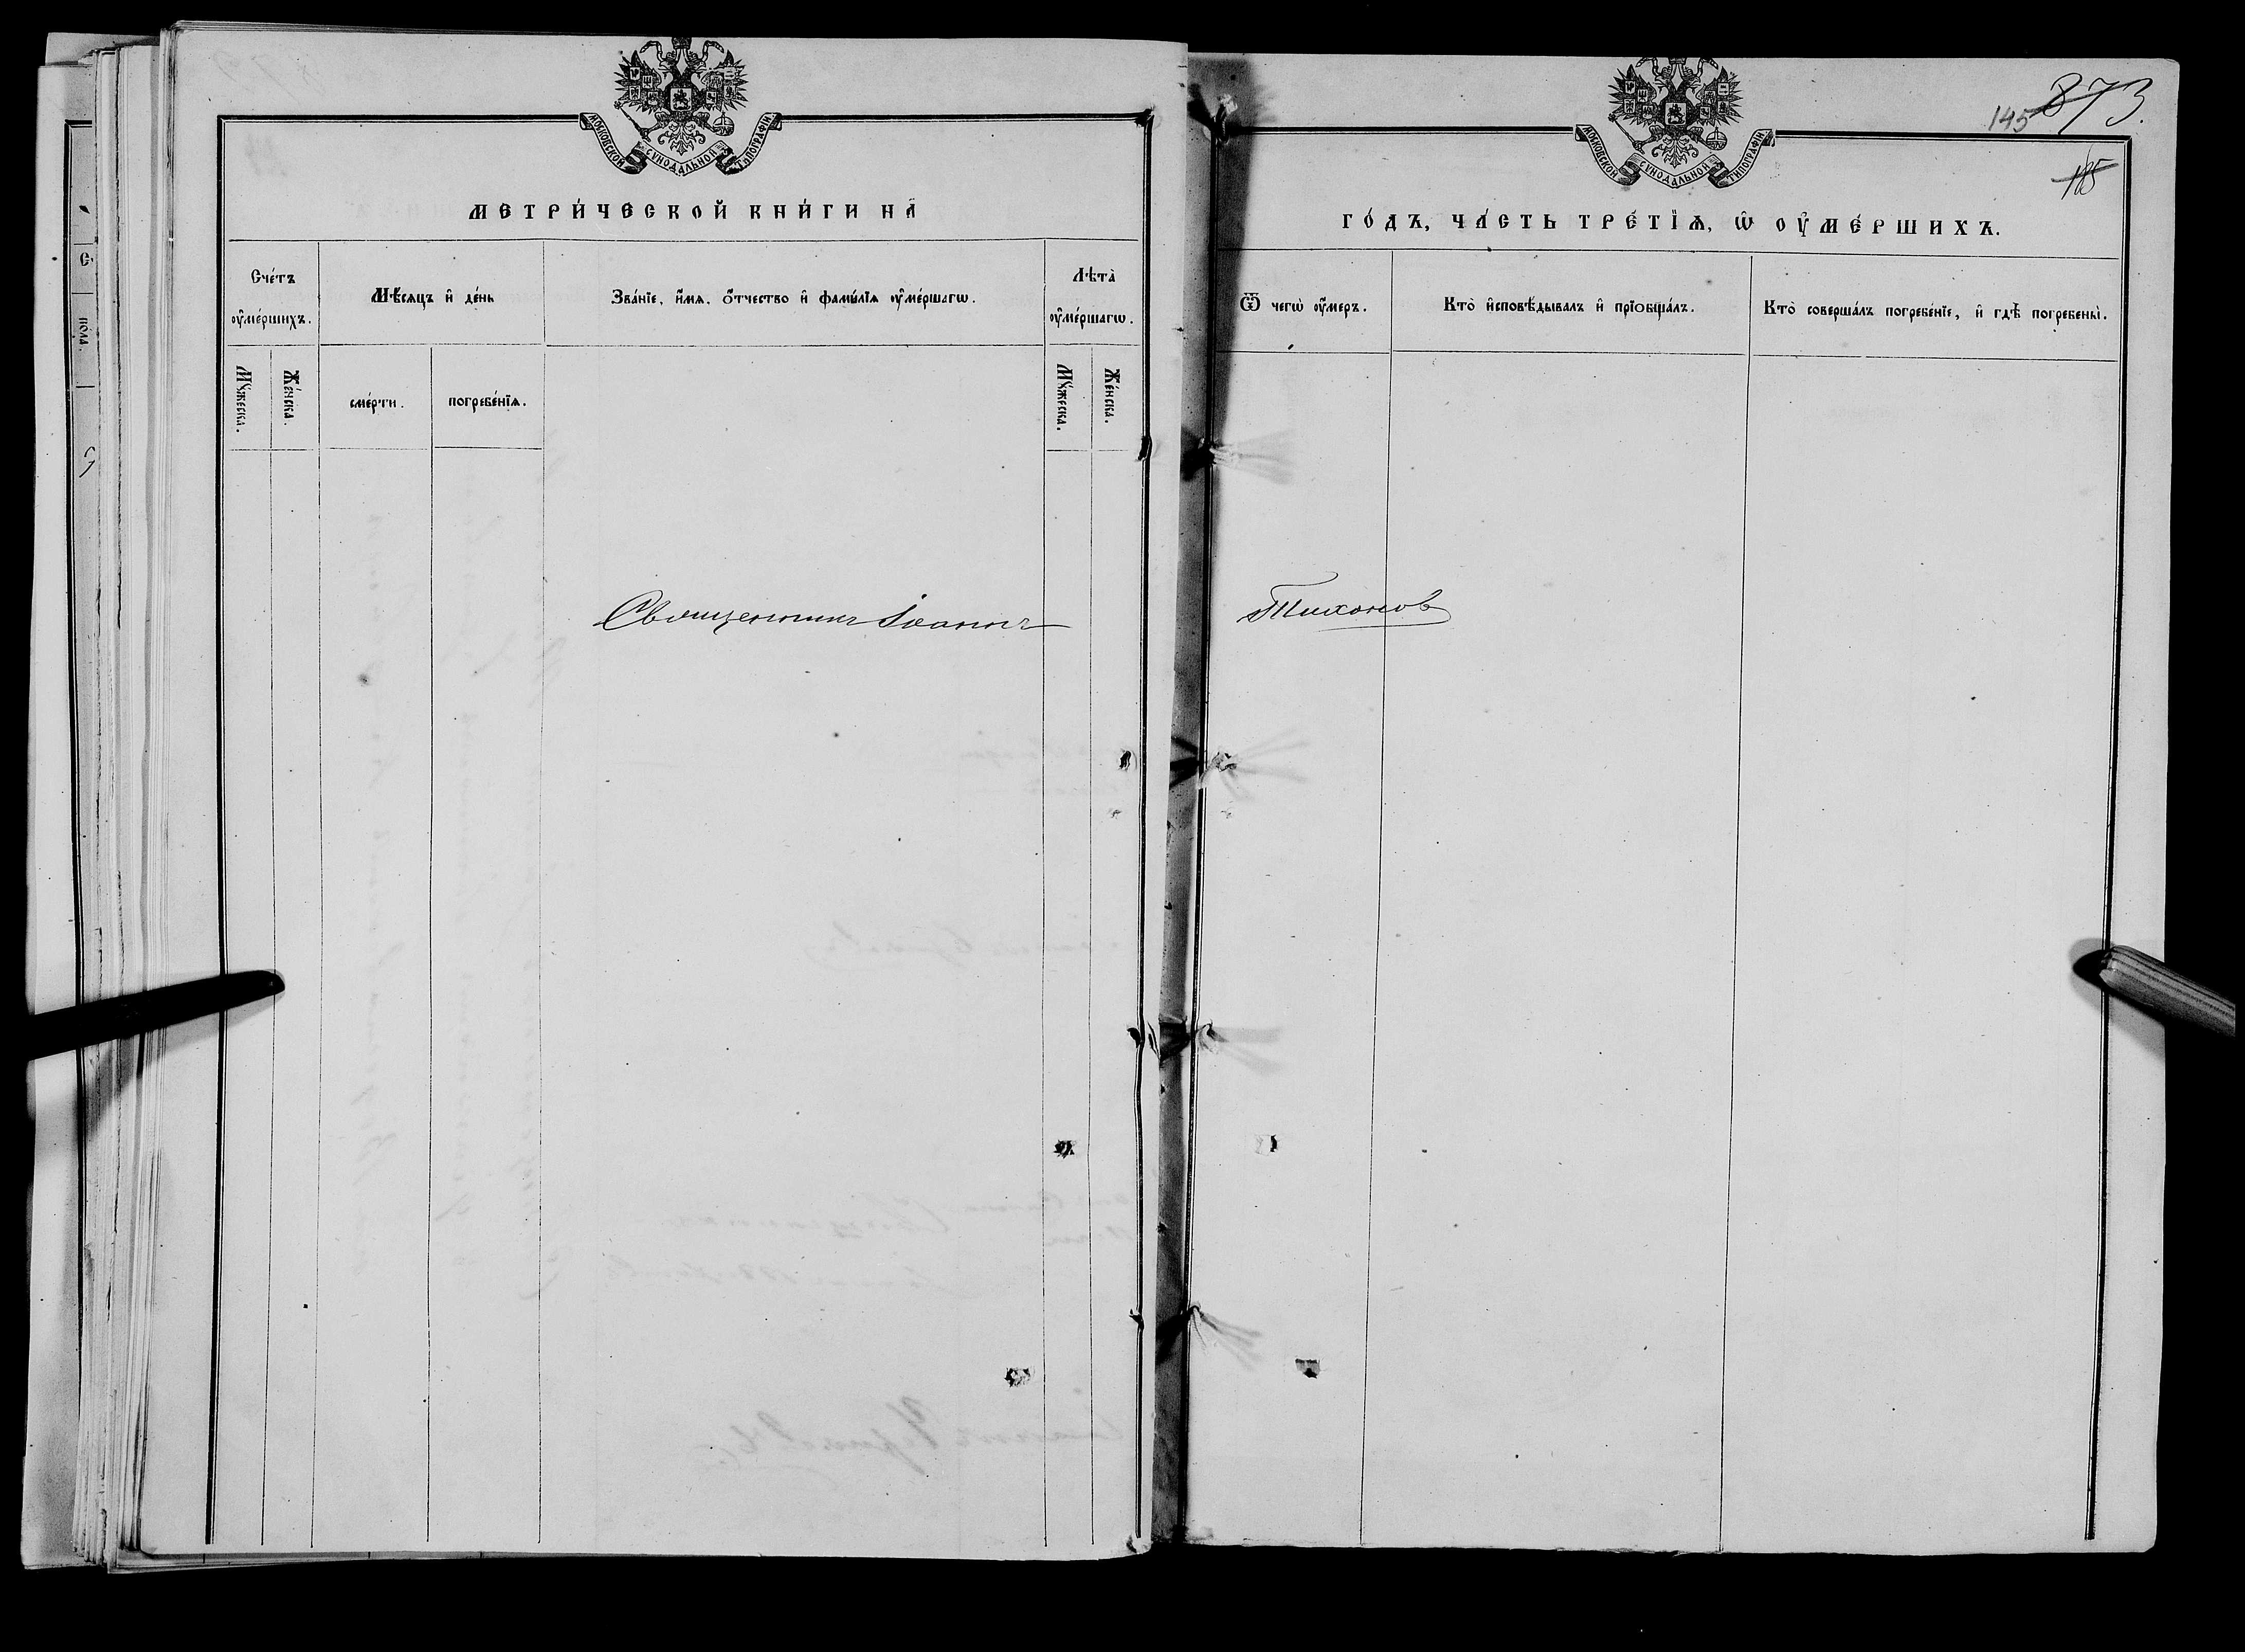 МОСКОВСКОЙ СѴНОДАЛЬНОЙ ТИПОГРАФІИ
МЕТРИ́ЧЕСКОЙ КНИ́ГИ НА̀
Сче́тъ ᲂу҆ме́ршихъ.
Мѣ́сяцъ и҆ де́нь
Зва́нїе, и҆́мѧ, ѻ҆́тчество и҆ фамы́лїѧ ᲂу҆ме́ршагѡ.
Лѣ́та ᲂу҆ме́ршагѡ.
Мꙋ́жеска.
Же́нска.
сме́рти.
погребе́нїѧ.
Мꙋ́жеска.
Же́нска.
Священникъ Іоаннъ
145 873.
185
МОСКОВСКОЙ СѴНОДАЛЬНОЙ ТИПОГРАФІИ
ГО́ДЪ, ЧА́СТЬ ТРЕ́ТЇѦ, Ѡ҆ ОУ҆МЕ́РШИХЪ.
Ѿ чегѡ̀ ᲂу҆́меръ.
Кто̀ и҆сповѣ́дывалъ и҆ прїѡбща́лъ.
Кто̀ соверша́лъ погребе́нїе, и҆ гдѣ̀ погребены̀.
Тихонов